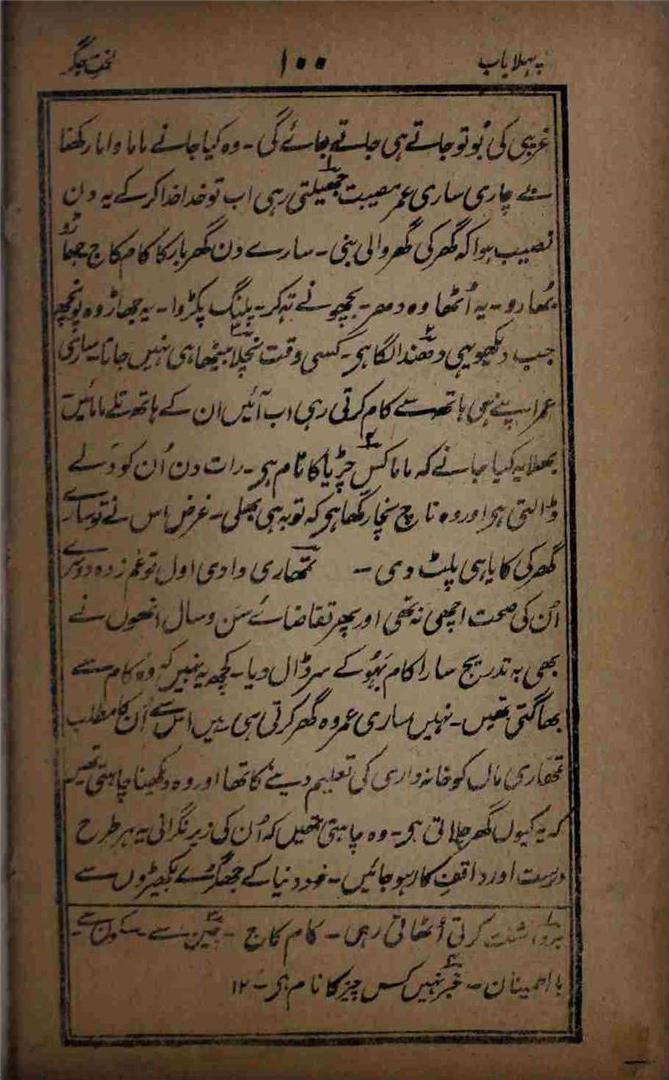 پہلا باب
۱۰۰
لختِ جگر
غریبی کی بُو تو جاتے ہی جاتے جائے گی ۔ وہ کیا جانے ماما واما رکھنا
بے چاری ساری عمر مصیبت جھیلتی رہی اب تو خدا خدا کر کے یہ دن
نصیب ہوا کہ گھر کی گھر والی بنی ۔ سارے دن گھر بار کا کام کاج جھاڑو
بُھارو ۔ یہ اُٹھا وہ دھر ۔ بچھونے تہ کر ۔ پلنگ پکڑوا ۔ یہ جھاڑ وہ پونچھ
جب دیکھو یہی دھندا لگا ہی ۔ کسی وقت نچلا بیٹھا ہی نہیں جاتا ۔ ساری
عمر اپنے ہی ہاتھ سے کام کرتی رہی اب آئیں ان کے ہاتھ تلے مامائیں
بھلا یہ کیا جانے کہ ماما کس چڑیا کا نام ہی ۔ رات دن اُن کو دَلے
ڈالتی ہی اور وہ ناچ نچا رکھا ہی کہ توبہ ہی بھلی ۔ غرض اس نے تو سارے
گھر کی کایا ہی پلٹ دی ۔ تمھاری دادی اول تو غم زدہ دوسرے
اُن کی صحت اچھی نہ تھی اور پھر تقاضائے سَن و سال انھوں نے
بھی بہ تدریج سارا کام بَہُو کے سر ڈال دیا ۔ کچھ یہ نہیں کہ وہ کام سے
بھاگتی تھیں ۔ نہیں ساری عمر وہ گھر کرتی ہی رہیں اس سے اُن کا مطلب
تمھاری ماں کو خانہ داری کی تعلیم دینے کا تھا اور وہ دیکھنا چاہتی تھیں
کہ یہ کیوں گھر چلاتی ہی ۔ وہ چاہتی تھیں کہ اُن کی زیر نگرانی یہ ہر طرح
درست اور واقف کار ہو جائیں ۔ خود دنیا کے جھگڑے بکھیڑوں سے
برداشت کرتی اُٹھاتی رہی ۔ کام کاج ۔ چین سے سکون سے ۔
با اطمینان ۔ خبر نہیں کس چیز کا نام ہی ۔ ۱۲